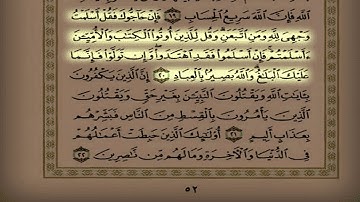 اللَّهِ فَإِنَّ اللَّهَ سَرِيعُ الْحِسَابِ ١٩ فَإِنْ حَاجُّوكَ فَقُلْ أَسْلَمْتُ
وَجْهِيَ لِلَّهِ وَمَنِ اتَّبَعَنِ وَقُل لِّلَّذِينَ أُوتُوا الْكِتَابَ وَالْأُمِّيِّينَ
ءَأَسْلَمْتُمْ فَإِنْ أَسْلَمُوا فَقَدِ اهْتَدَوا وَّإِن تَوَلَّوْا فَإِنَّمَا
عَلَيْكَ الْبَلَاغُ وَاللَّهُ بَصِيرٌ بِالْعِبَادِ ٢٠ إِنَّ الَّذِينَ يَكْفُرُونَ
بِآيَاتِ اللَّهِ وَيَقْتُلُونَ النَّبِيِّينَ بِغَيْرِ حَقٍّ وَيَقْتُلُونَ
الَّذِينَ يَأْمُرُونَ بِالْقِسْطِ مِنَ النَّاسِ فَبَشِّرْهُم
بِعَذَابٍ أَلِيمٍ ٢١ أُولَٰئِكَ الَّذِينَ حَبِطَتْ أَعْمَالُهُمْ
فِي الدُّنْيَا وَالْآخِرَةِ وَمَا لَهُم مِّن نَّاصِرِينَ ٢٢
٥٢